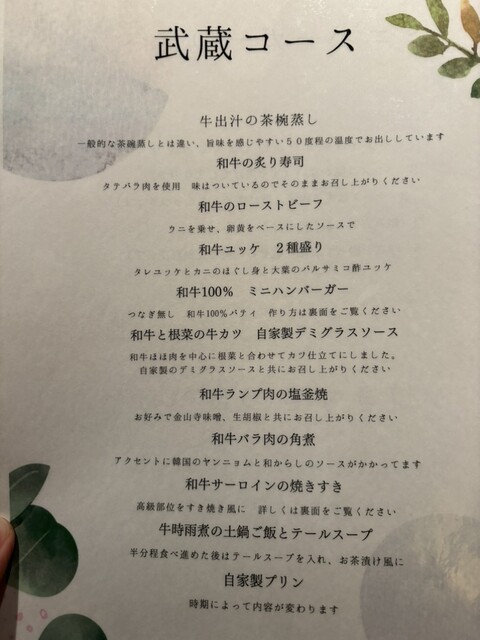 武蔵コース
牛出汁の茶椀蒸し
一般的な茶碗蒸しとは違い、旨味を感じやすい５０度程の温度でお出ししています
和牛の炙り寿司
タテバラ肉を使用　味はついているのでそのままお召し上がりください
和牛のローストビーフ
ウニを乗せ、卵黄をベースにしたソースで
和牛ユッケ　２種盛り
タレユッケとカニのほぐし身と大葉のバルサミコ酢ユッケ
和牛100%　ミニハンバーガー
つなぎ無し　和牛100%パティ　作り方は裏面をご覧ください
和牛と根菜の牛カツ　自家製デミグラスソース
和牛ほほ肉を中心に根菜と合わせてカツ仕立てにしました。
自家製のデミグラスソースと共にお召し上がりください
和牛ランプ肉の塩釜焼
お好みで金山寺味噌、生胡椒と共にお召し上がりください
和牛バラ肉の角煮
アクセントに韓国のヤンニョムと和からしのソースがかかってます
和牛サーロインの焼きすき
高級部位をすき焼き風に　詳しくは裏面をご覧ください
牛時雨煮の土鍋ご飯とテールスープ
半分程食べ進めた後はテールスープを入れ、お茶漬け風に
自家製プリン
時期によって内容が変わります